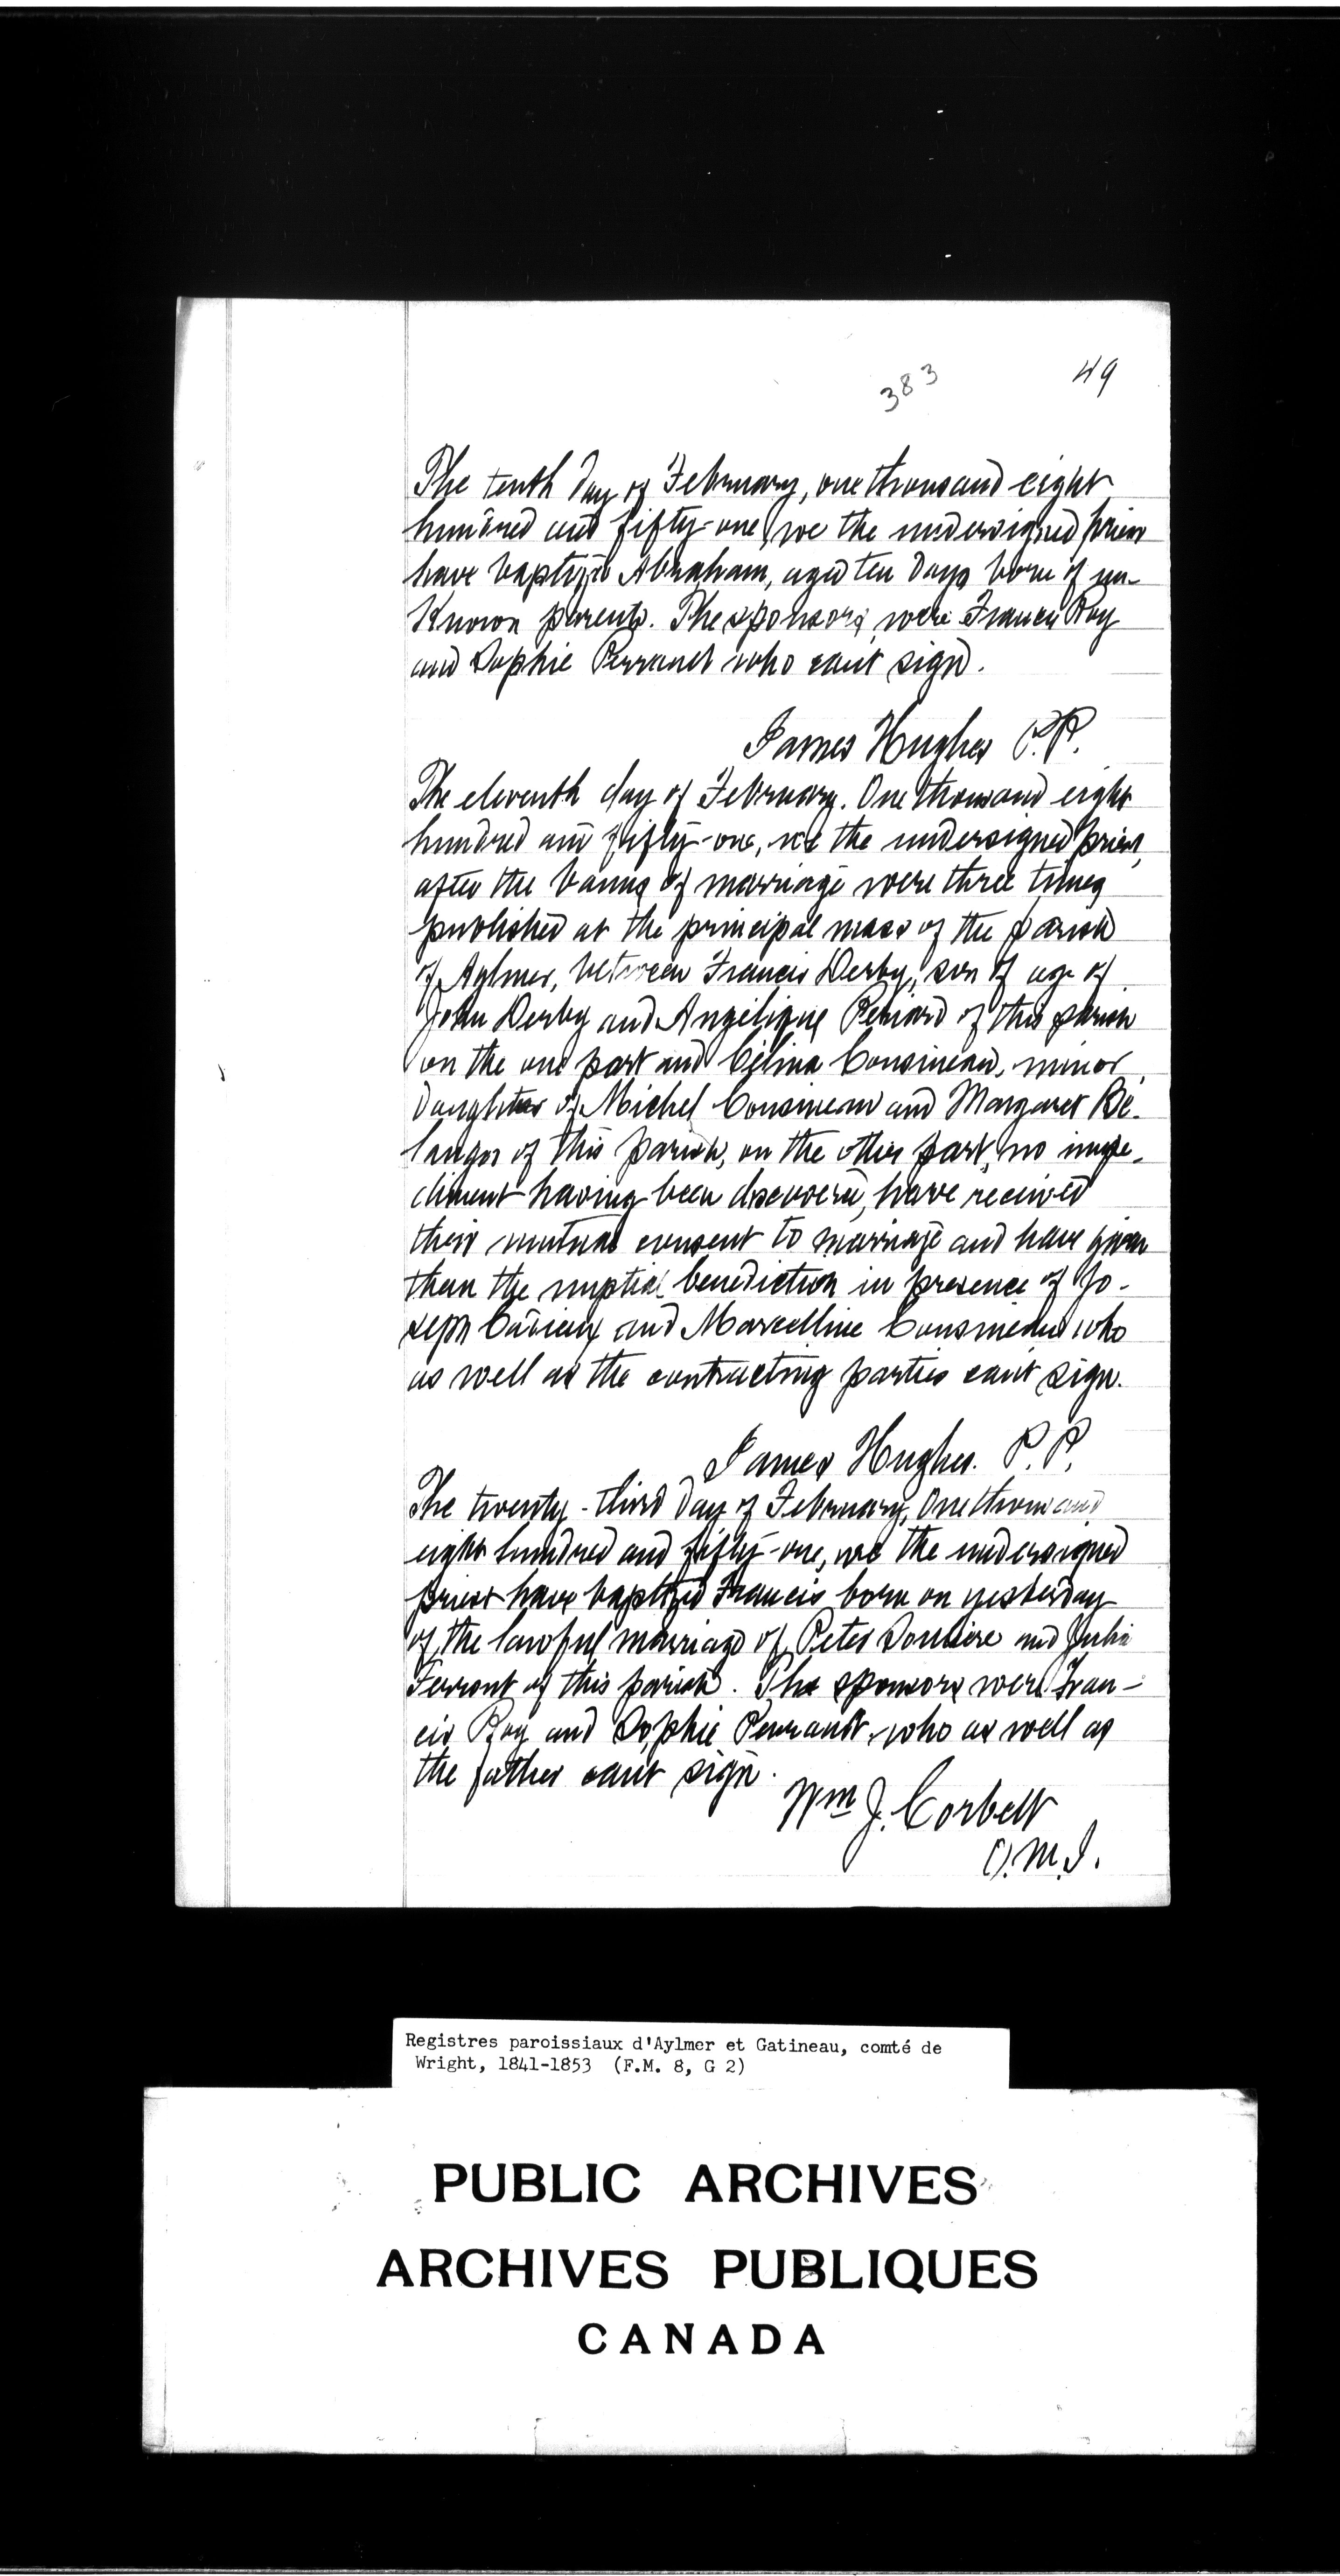 383
49
The tenth day of February, one thousand eight
hundred and fifty-one, we the undersigned priest
have baptized Abraham, aged ten days born of un-
known parents. The sponsors were Francis Roy
and Sophie Perrault who can't sign.
James Hughes P.P.
The eleventh day of February. One thousand eight
hundred and fifty-one, we the undersigned priest,
after the banns of marriage were three times
published at the principal mass of the parish
of Aylmer, between Francis Derby, son of age of
John Derby and Angélique of this parish
on the one part and Célina Cousineau, minor
daughter of Michel Cousineau and Margaret Bé-
langer of this parish, on the other part, no impe-
diment having been discovered, have received
their mutual consent to marriage and have given
them the nuptial benediction in presence of Jo-
seph and Marcelline Cousineau who
as well as the contracting parties can't sign.
James Hughes. P.P.
The twenty-third day of February, One thousand
eight hundred and fifty-one, we the undersigned
priest have baptized Francis born on yesterday
of the lawful marriage of Peter and Julia
of this parish. The sponsors were Fran-
cis Roy and Sophie Perrault, who as well as
the father can't sign.
Wm J. Corbett
O.M.I.
Registres paroissiaux d'Aylmer et Gatineau, comté de
Wright, 1841-1853 (F.M. 8, G 2)
PUBLIC ARCHIVES
ARCHIVES PUBLIQUES
CANADA